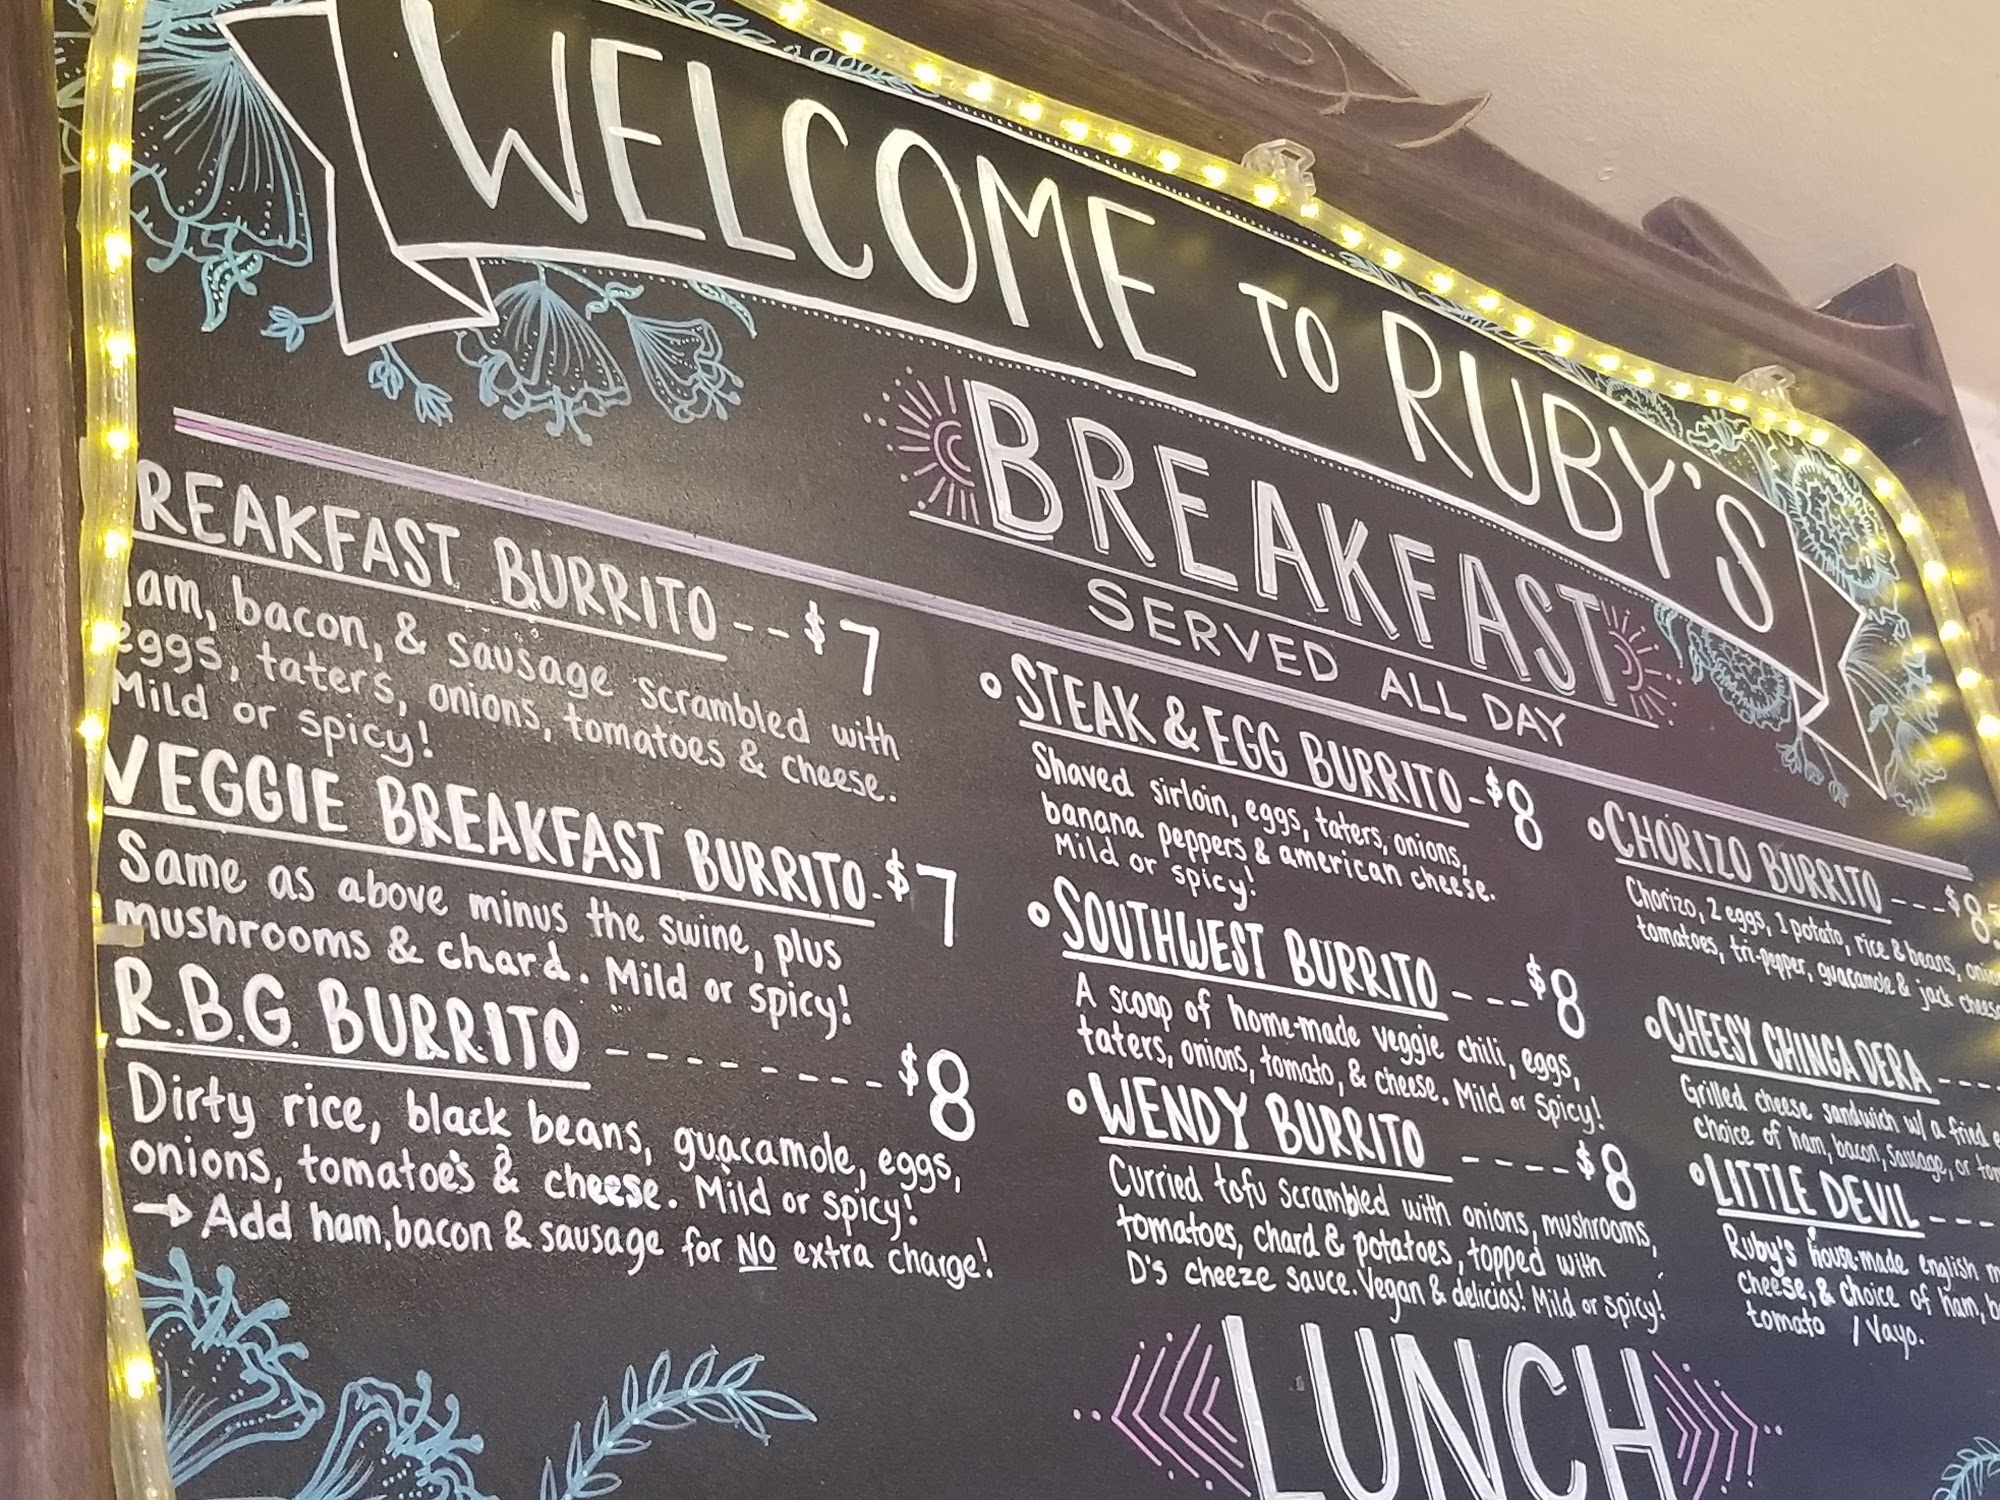 WELCOME TO RUBY'S
BREAKFAST
SERVED ALL DAY
REAKFAST BURRITO -- $7
am, bacon, & sausage scrambled with
eggs, taters, onions, tomatoes & cheese.
Mild or spicy!
VEGGIE BREAKFAST BURRITO - $7
Same as above minus the swine, plus
mushrooms & chard. Mild or spicy!
R.B.G. BURRITO -------- $8
Dirty rice, black beans, guacamole, eggs,
onions, tomatoes & cheese. Mild or spicy!
→ Add ham, bacon & sausage for NO extra charge!
STEAK & EGG BURRITO - $8
Shaved sirloin, eggs, taters, onions,
banana peppers & american cheese.
Mild or spicy!
SOUTHWEST BURRITO --- $8
A scoop of home-made veggie chili, eggs,
taters, onions, tomato, & cheese. Mild or spicy!
WENDY BURRITO ---- $8
Curried tofu scrambled with onions, mushrooms,
tomatoes, chard & potatoes, topped with
D's cheeze sauce. Vegan & delicios! Mild or spicy!
CHORIZO BURRITO --- $8.5
Chorizo, 2 eggs, 1 potato, rice & beans, onio
tomatoes, tri-pepper, guacamole & jack cheese
CHEESY CHINGADERA ----
Grilled cheese sandwich w/ a fried e
choice of ham, bacon, sausage, or tom
LITTLE DEVIL ---
Ruby's house-made english m
cheese, & choice of ham, b
tomato / Vayo.
LUNCH